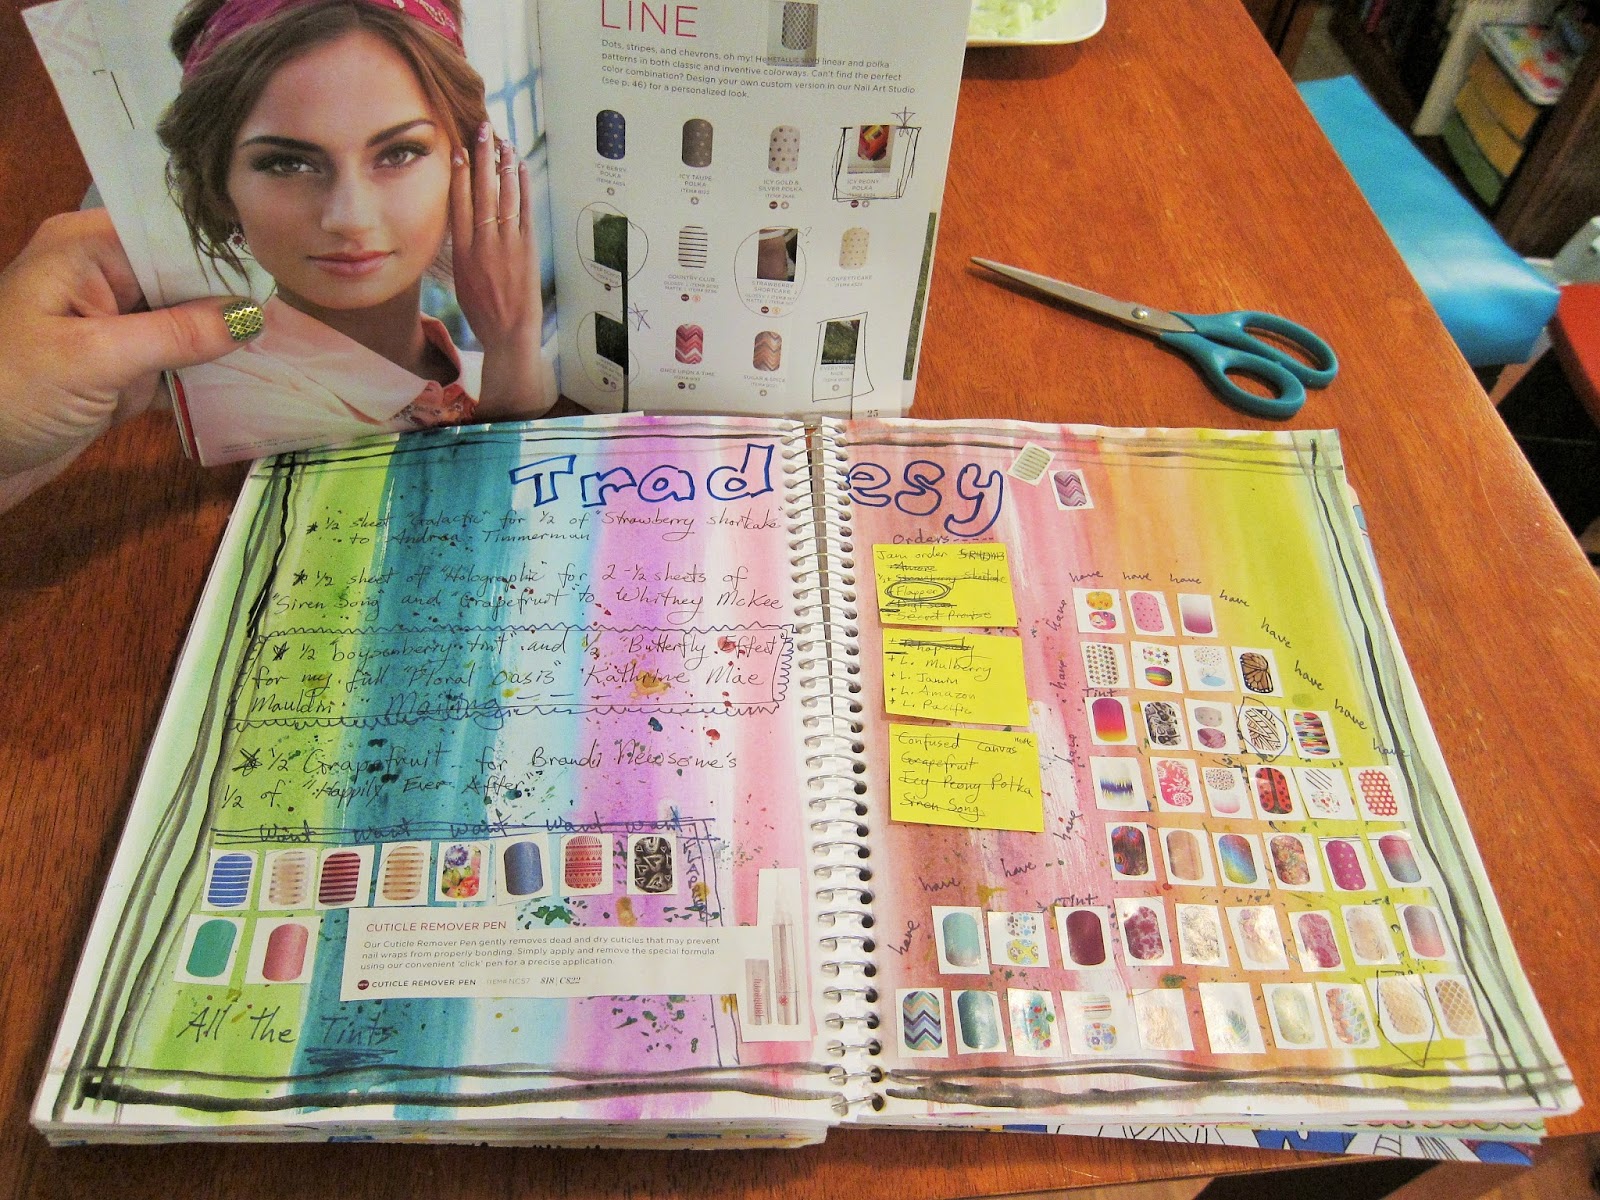 LINE
Dots, stripes, and chevrons, oh my!
patterns in both classic and inventive colorways. Can't find the perfect
color combination? Design your own custom version in our Nail Art Studio
(see p. 46) for a personalized look.
ICY BERRY POLKA
ICY TAUPE POLKA
ICY GOLD & SILVER POLKA
ICY PEONY POLKA
COUNTRY CLUB
STRAWBERRY SHORTCAKE
?
CONFETTI CAKE
ONCE UPON A TIME
SUGAR & SPICE
25
Tradesy
* 1/2 sheet "Galactic" for 1/2 of "Strawberry Shortcake"
to Andrea Timmerman
* 1/2 sheet of "Holographic" for 2-1/2 sheets of
"Siren Song" and "Grapefruit" to Whitney McKee
* 1/2 "boysenberry tint" and 1/2 "Butterfly Effect"
for my full "Floral Oasis" Kathrine Mae
Mauldin
* 1/2 Grapefruit for Brandi Newsome's
1/2 of "Happily Ever After"
want want want want want
CUTICLE REMOVER PEN
Our Cuticle Remover Pen gently removes dead and dry cuticles that may prevent
nail wraps from properly bonding. Simply apply and remove the special formula
using our convenient 'click' pen for a precise application.
CUTICLE REMOVER PEN ITEM# NC57 $18 | C$22
All the Tints
Orders
Jam order
Flapper
Secret Promise
+ Rhapsody
+ L. Mulberry
+ L. Jamin
+ L. Amazon
+ L. Pacific
Confused Canvas
Grapefruit
Icy Peony Polka
Siren Song
have have have have
have have
have have
have have
Tint
have
have
have
have have
have Tint